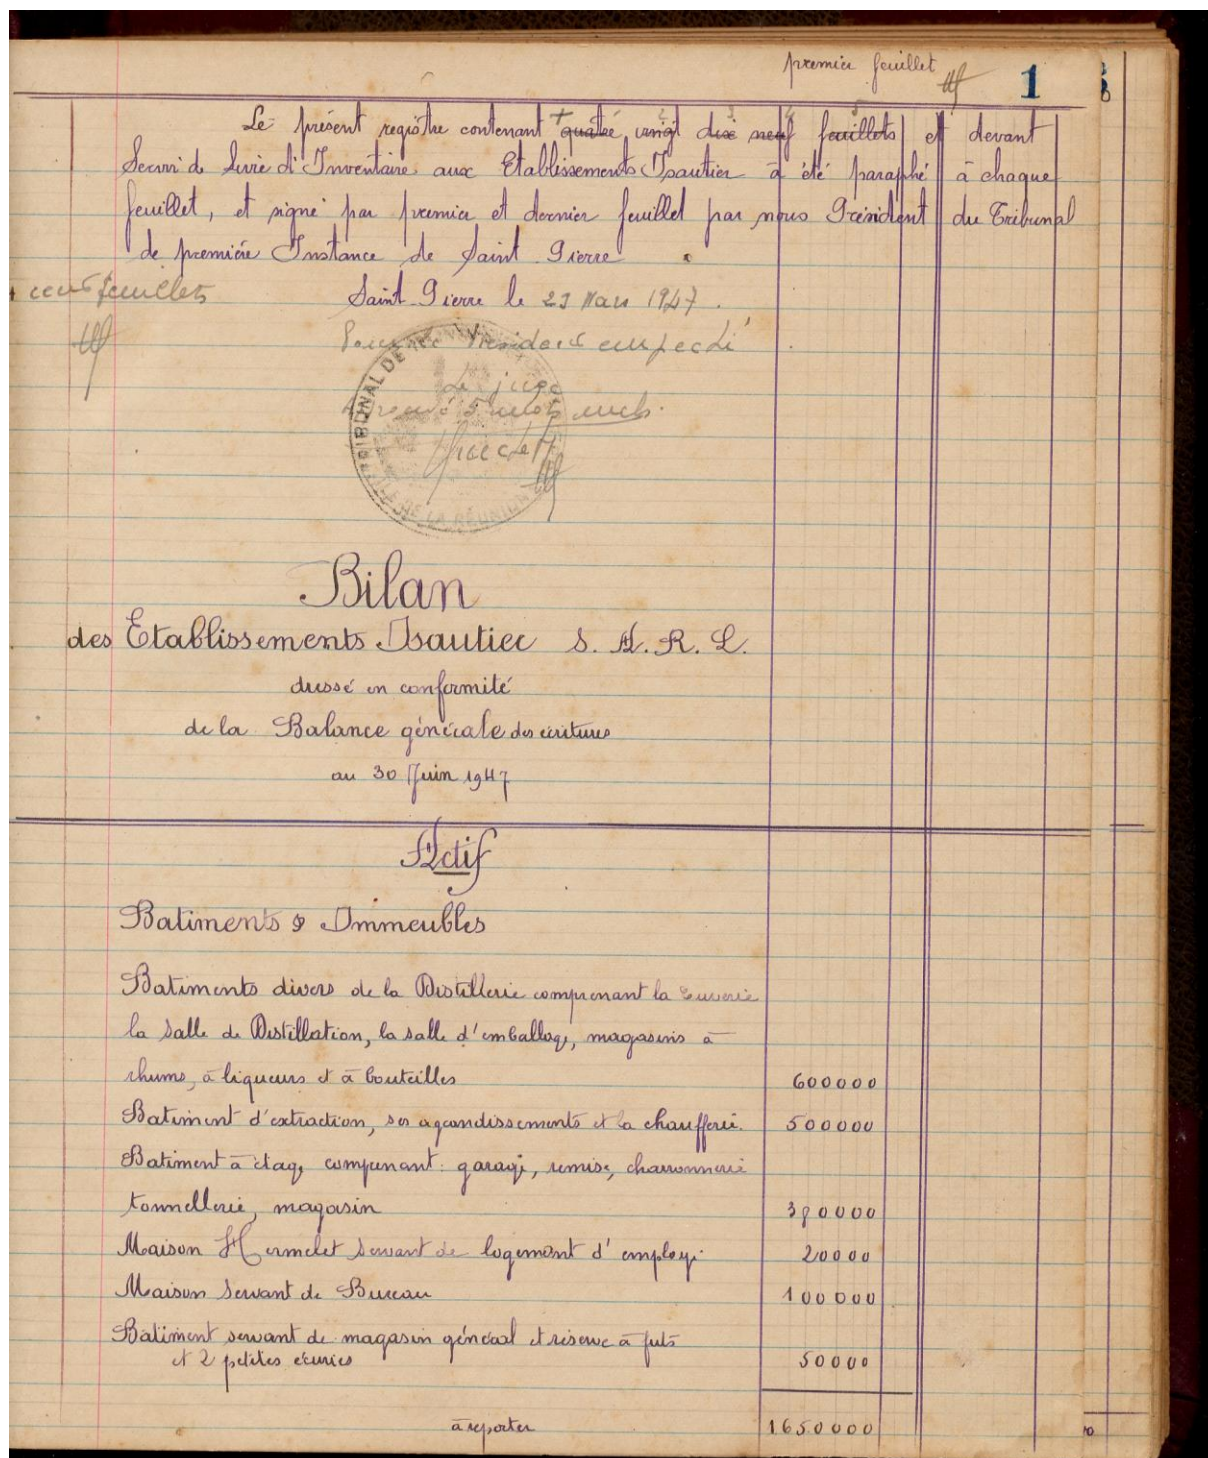 premier feuillet
1
Le présent registre contenant quatre vingt dix neuf feuillets et devant
Servir de Livre d'Inventaire aux Etablissements Isautier a été paraphé à chaque
feuillet, et signé par premier et dernier feuillet par nous Président du Tribunal
de première Instance de Saint Pierre
cent feuillets
Saint Pierre le 29 Mars 1947.
Pour le Président empêché
Le juge
5 mots nuls.
TRIBUNAL DE
DE LA RÉUNION
Bilan
des Etablissements Isautier S. A. R. L.
dressé en conformité
de la Balance générale des écritures
au 30 Juin 1947
Actif
Batiments & Immeubles
Batiments divers de la Distillerie comprenant la Cuverie
la Salle de Distillation, la salle d'emballage, magasins à
rhums, à liqueurs et à bouteilles 600000
Batiment d'extraction, ses agrandissements et la chaufferie. 500000
Batiment à étage comprenant: garage, remise, charronnerie
tonnellerie, magasin 380000
Maison Hermelet servant de logement d'employé 20000
Maison Servant de Bureau 100000
Bâtiment servant de magasin général et réserve à futs
et 2 petites écuries 50000
à reporter 1.650000